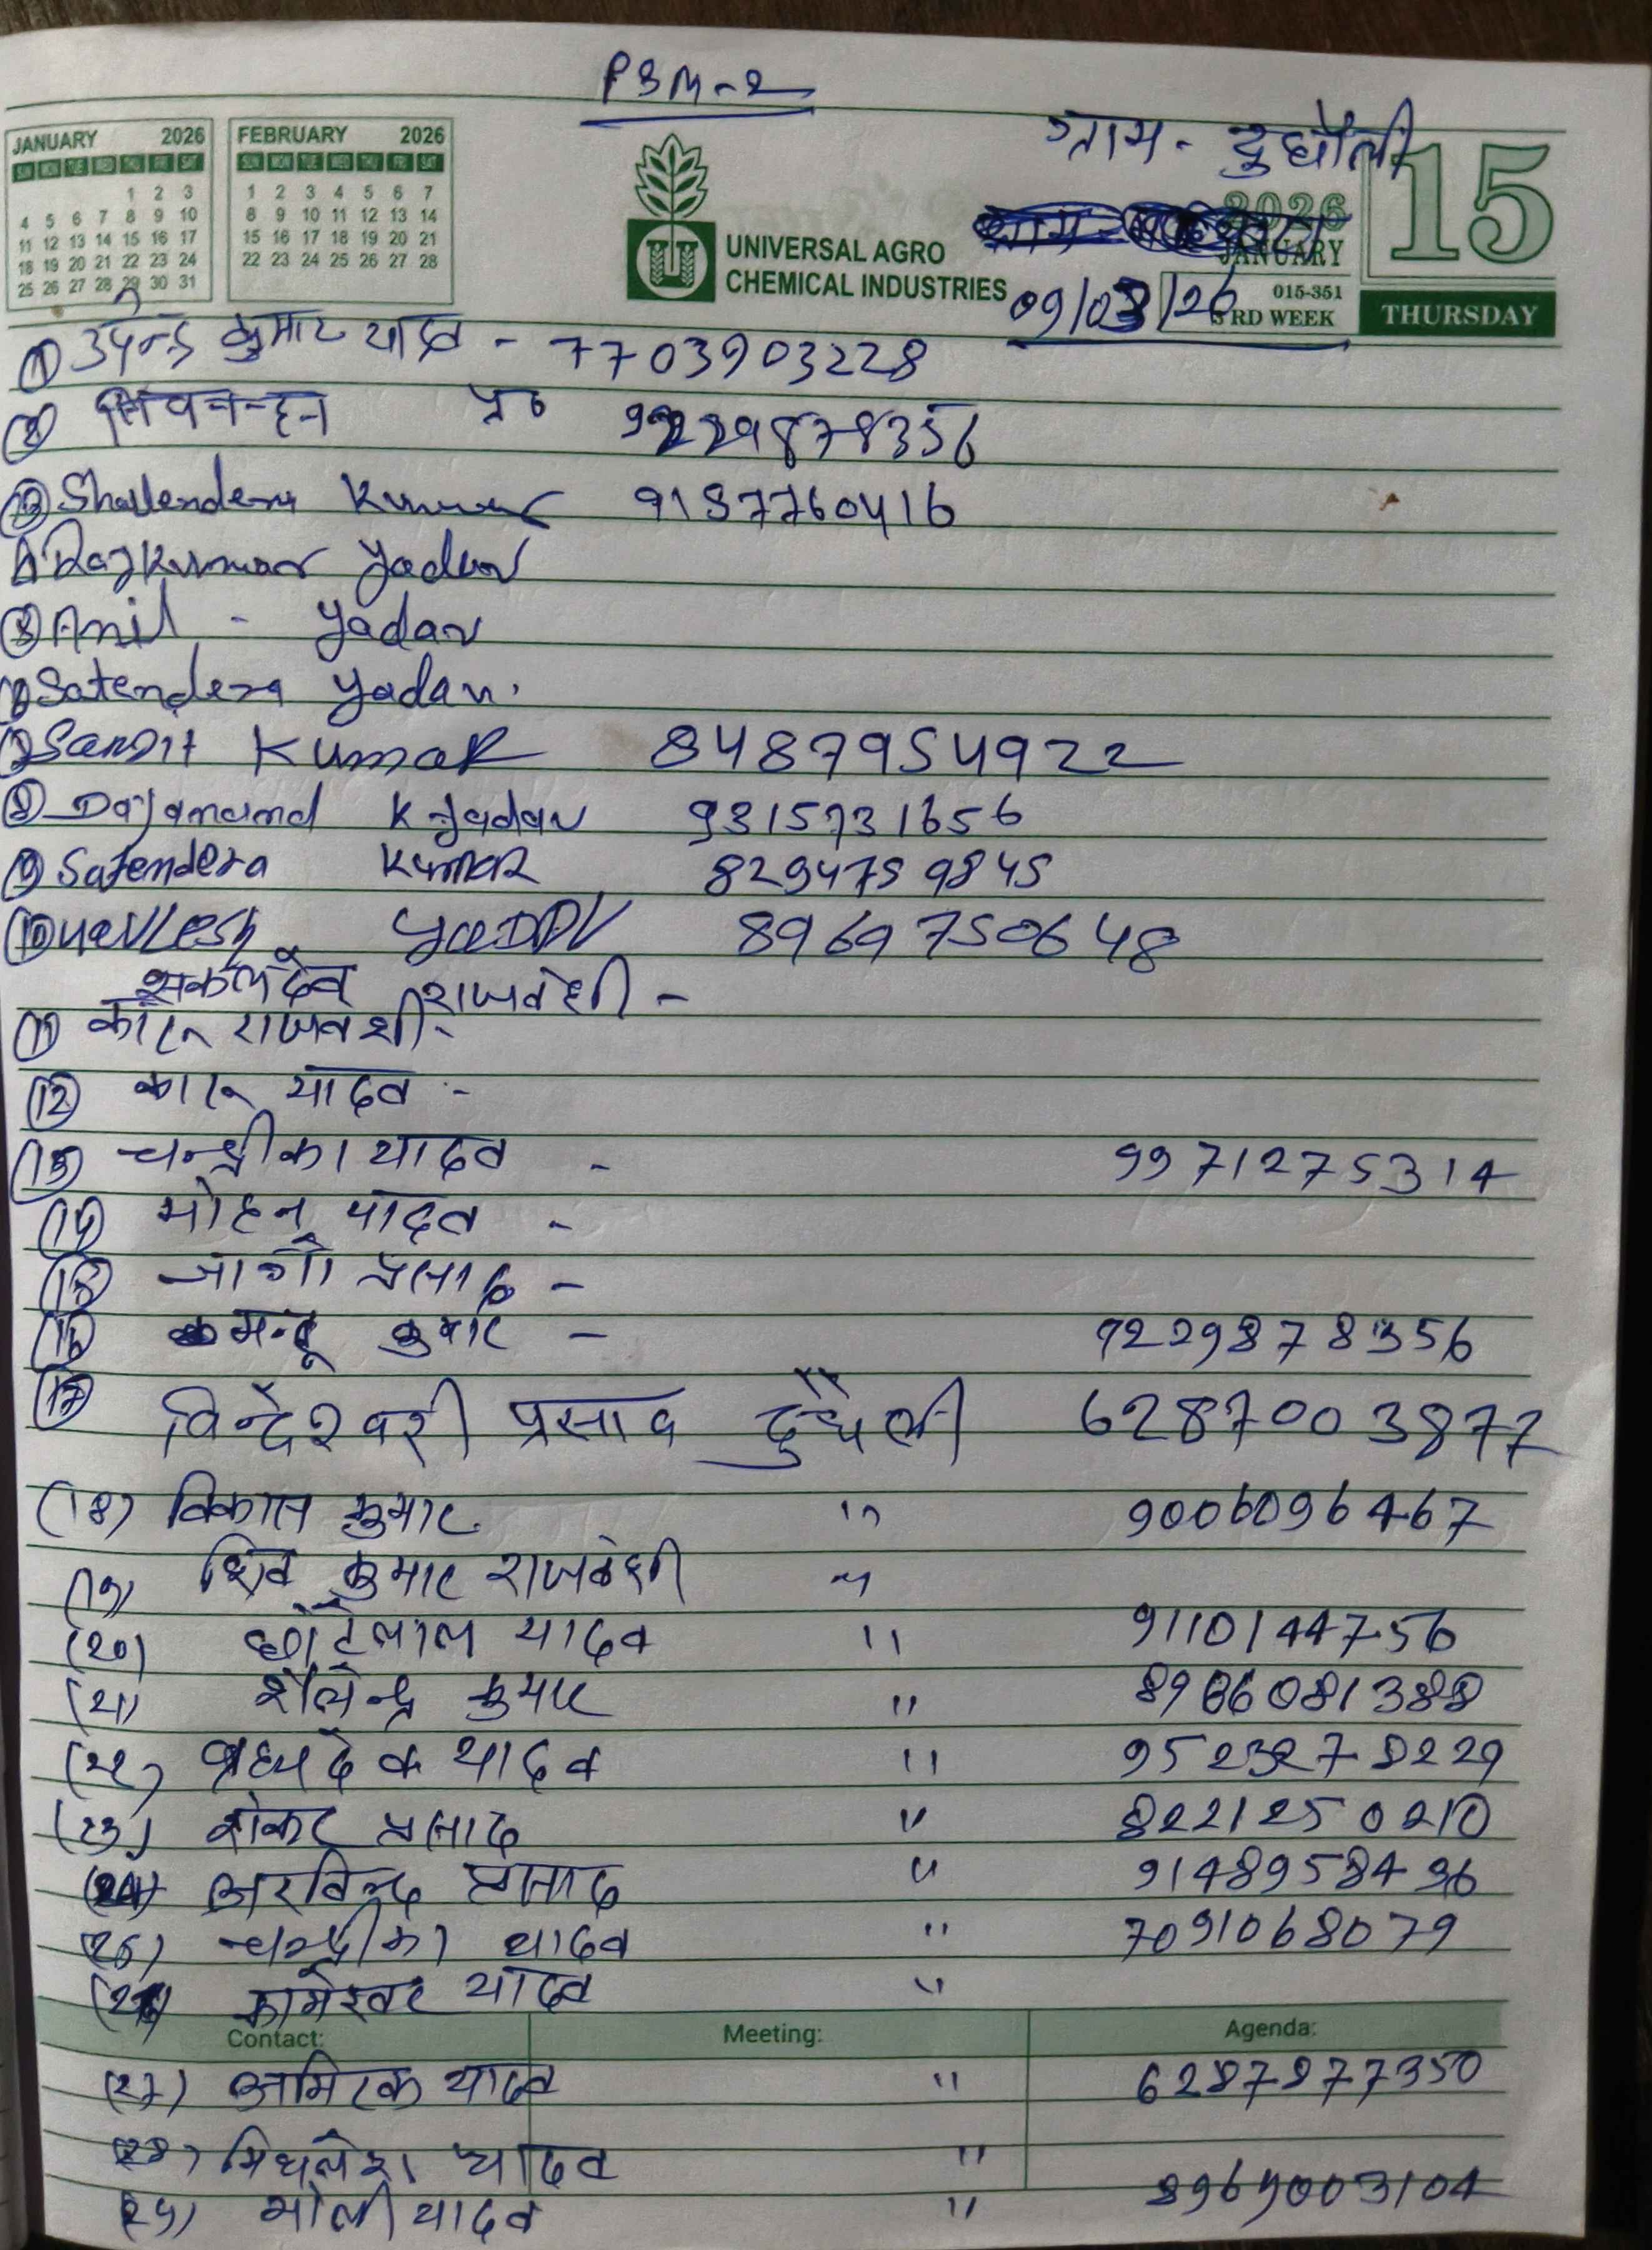 PBM-2
JANUARY 2026
SUN MON TUE WED THU FRI SAT
1 2 3
4 5 6 7 8 9 10
11 12 13 14 15 16 17
18 19 20 21 22 23 24
25 26 27 28 29 30 31
FEBRUARY 2026
SUN MON TUE WED THU FRI SAT
1 2 3 4 5 6 7
8 9 10 11 12 13 14
15 16 17 18 19 20 21
22 23 24 25 26 27 28
UNIVERSAL AGRO
CHEMICAL INDUSTRIES
ग्राम- दुधौली
2026
JANUARY
015-351
3RD WEEK
15
THURSDAY
09/03/26
① उपेन्द्र कुमार यादव - 7703903228
② प्र० 9229878356
Shailendera Kumar 9187760416
Rajkumar Yadav
Anil - Yadav
Satendera Yadav.
Kumar 8487954922
⑧ Dayanand K Yadav 9315731656
⑨ Satendera Kumar 8294759845
⑩ Yadav 8969750648
सकलदेव राजवंशी -
⑪ कारू राजवंशी -
⑫ कारू यादव -
⑬ चन्द्रीका यादव - 9971275314
⑭ मोहन यादव -
⑮ जागो प्रसाद -
⑯ कुमार - 9229878356
⑰ विन्देश्वरी प्रसाद दुधैली 6287003877
(18) विकास कुमार " 9006096467
(19) शिव कुमार राजवंशी "
(20) छोटेलाल यादव " 9110144756
(21) शैलेन्द्र कुमार " 8966081388
(22) यादव " 9523278229
(23) शंकर प्रसाद " 8221250210
(24) अरविन्द प्रसाद " 9148958496
(25) चन्द्रीका यादव " 7091068079
(26) कामेश्वर यादव "
Contact: Meeting: Agenda:
(27) यादव " 6287877350
(28) मिथलेश यादव "
(29) भोली यादव " 8969003104